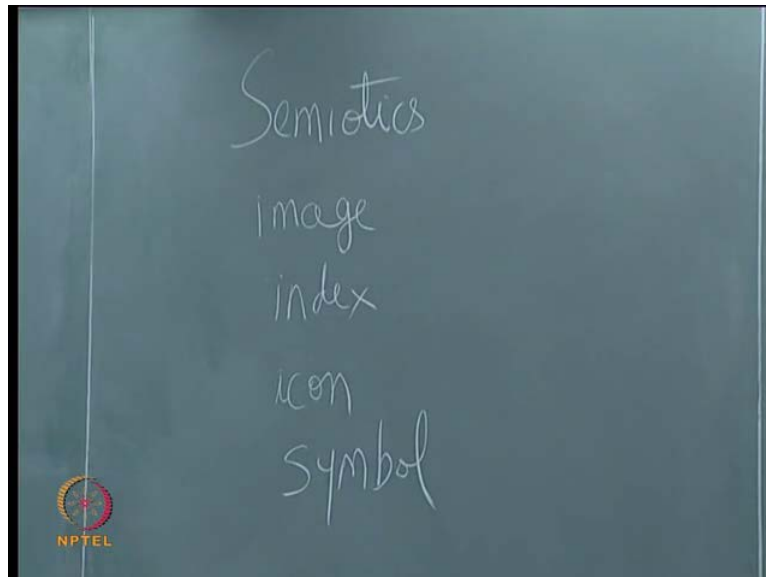 Semiotics
image
index
icon
symbol
NPTEL